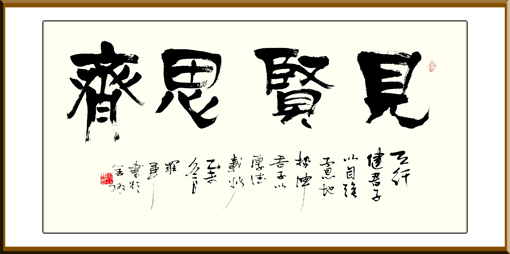 見賢思齊
天行
健君子
以自強
不息地
勢坤
君子以
厚德
載物
書於